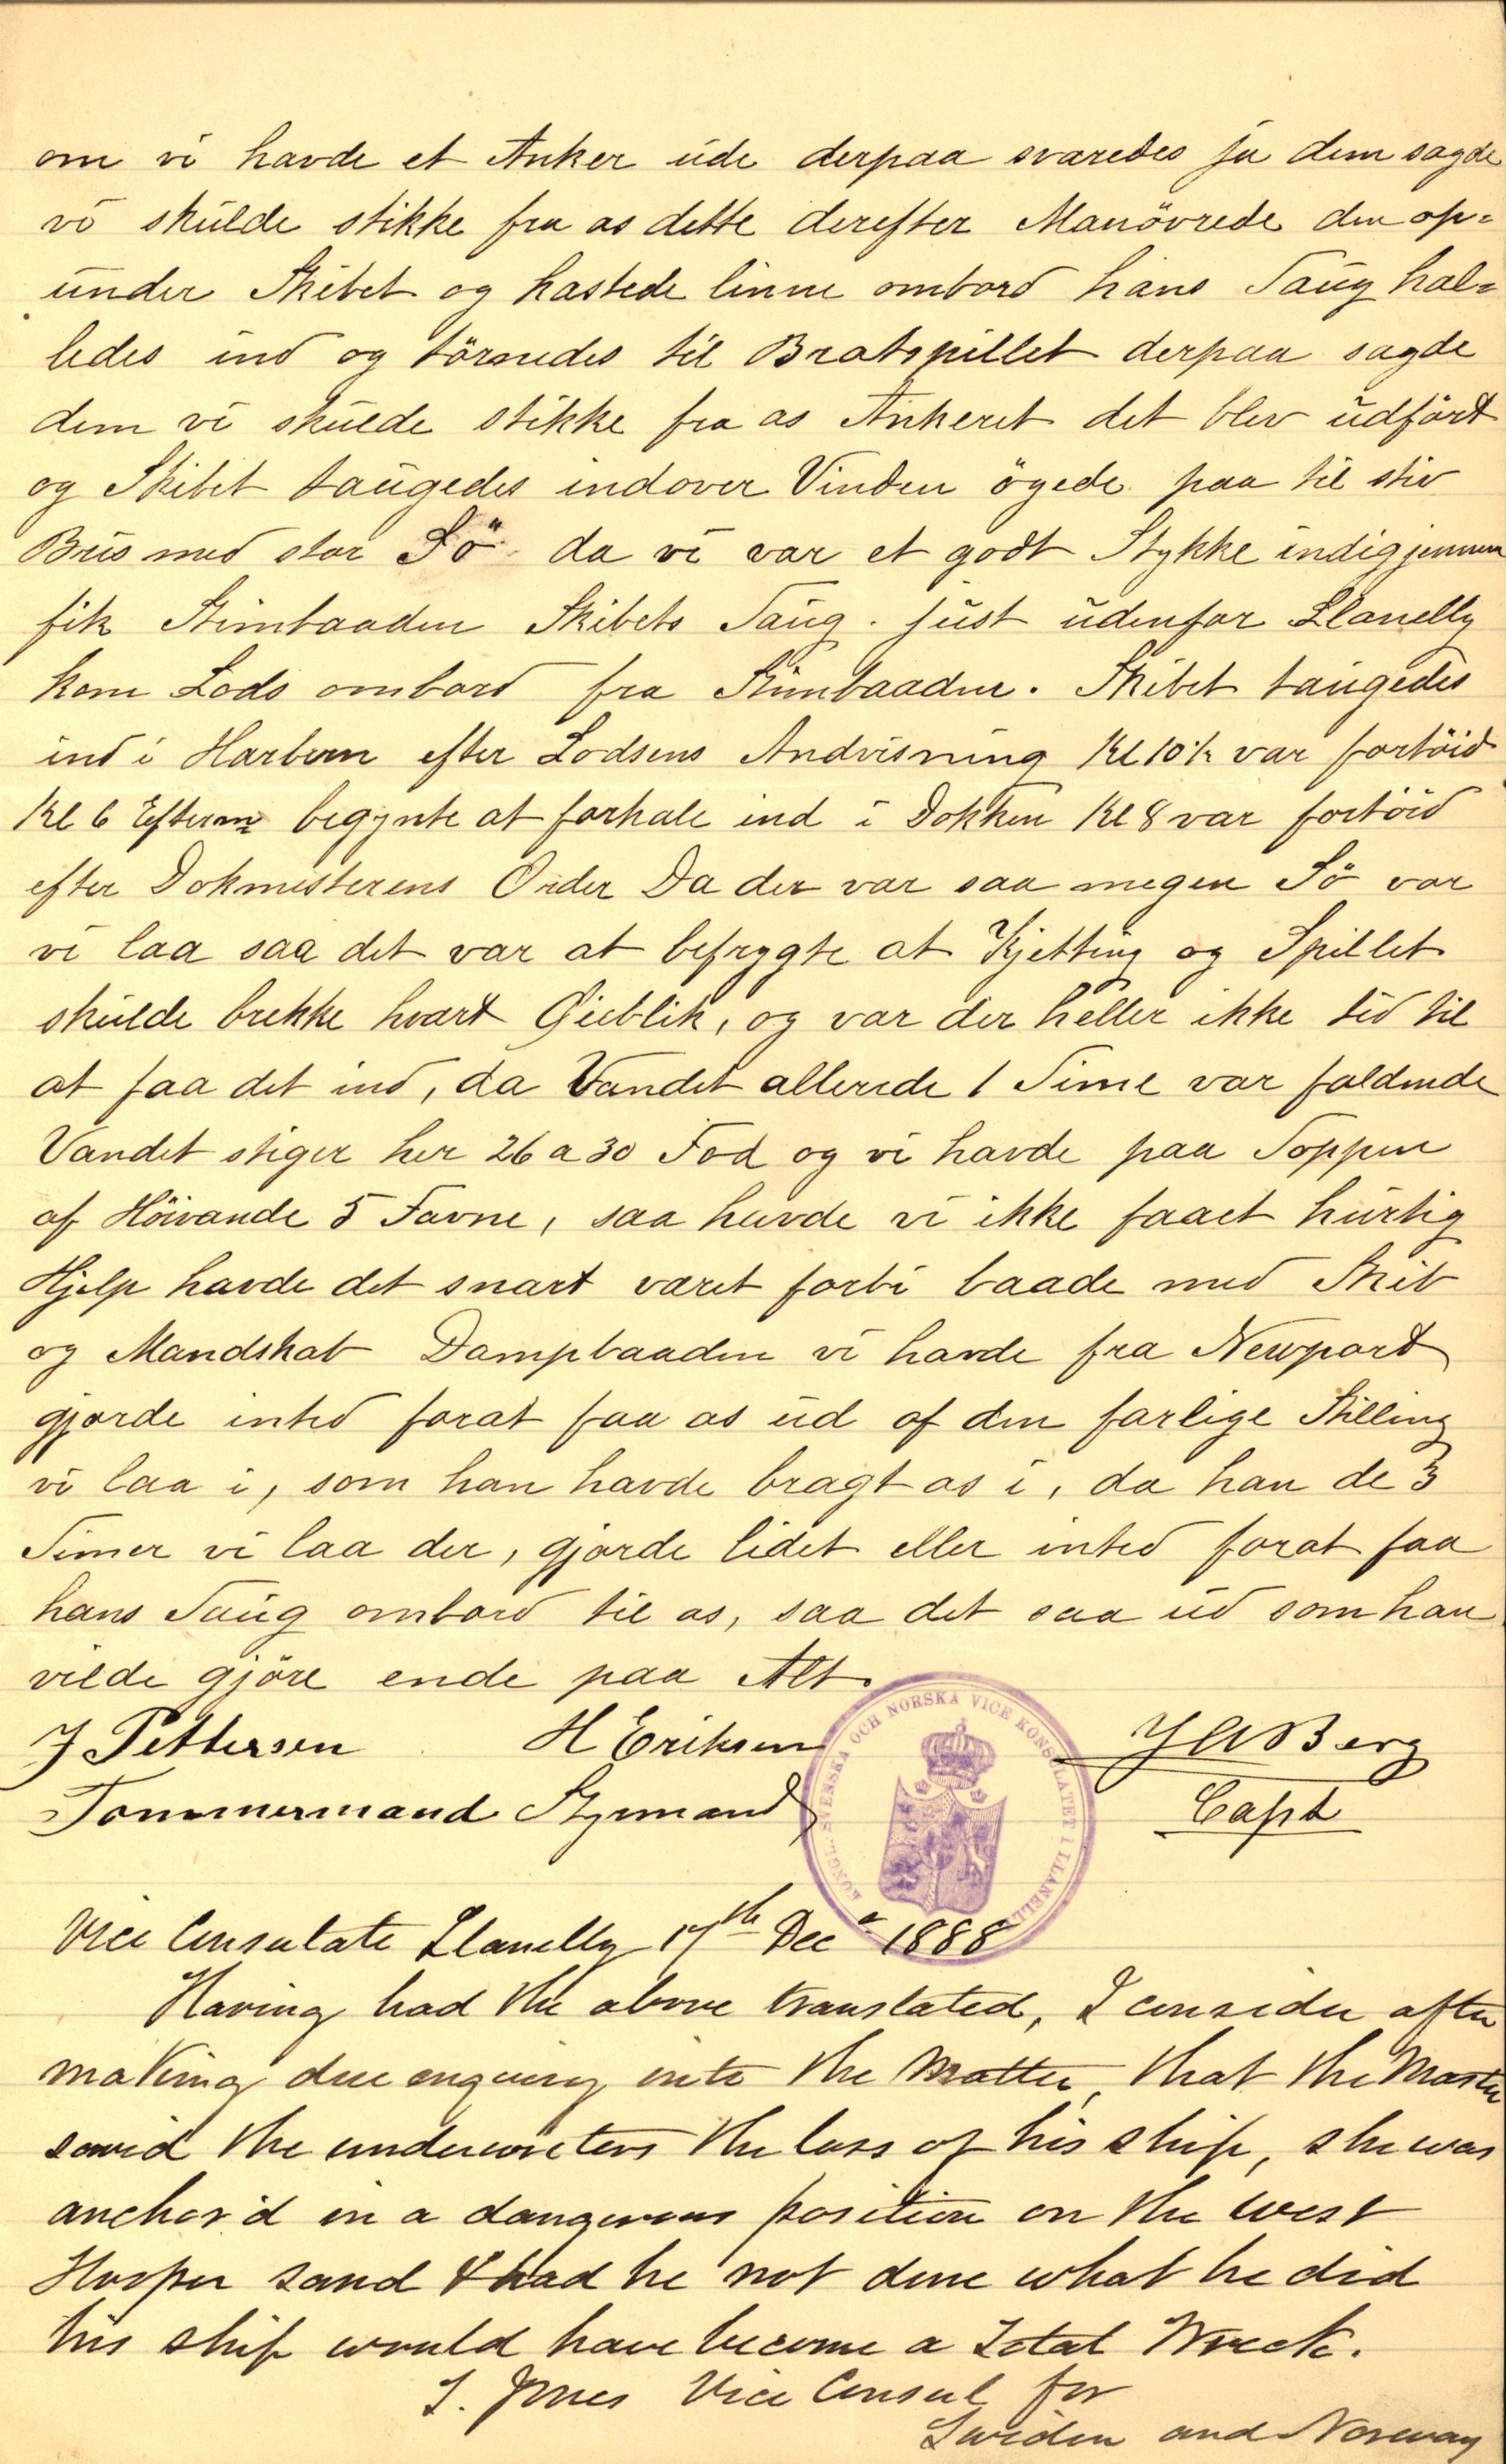 om vi havde et Anker ude derpaa svaredes ja dem sagde
vi skulde stikke fra os dette derefter Manövrede den op=
under Skibet og kastede linne ombord hans Taug hal=
ledes ind og törnedes til Bratspillet derpaa sagde
dem vi skulde stikke fra os Ankeret det blev udfört
og Skibet taugedes indover Vinden ögede paa til stiv
Bris med stor Sö da vi var et godt Stykke indigjennem
fik Stimbaaden Skibets Taug. just udenfor Llanelly
kom Lods ombord fra Stimbaaden. Skibet taugedes
ind i Harbern efter Lodsens Andvisning Kl 10½ var fortöid
Kl 6 Efterm begynte at forhale ind i Dokken Kl 8 var fortöid
efter Dokmesterens Order Da der var saa megen Sö vor
vi laa saa det var at befrygte at Kjetting og Spillet
skulde brekke hvert Öieblik, og var der heller ikke tid til
at faa det ind, da Vandet allerede 1 Time var faldende
Vandet stiger her 26 a 30 Fod og vi havde paa Toppen
af Höivande 5 Favne, saa havde vi ikke faaet hurtig
Hjelp havde det snart været forbi baade med Skib
og Mandskab Dampbaaden vi havde fra Newport
gjorde inted forat faa os ud af den farlige Stilling
vi laa i, som han havde bragt os i, da han de 3
Timer vi laa der, gjorde lidet eller inted forat faa
hans Taug ombord til os, saa det saa ud som han
vilde gjöre ende paa Alt.
J Pettersen H Eriksen J A Berg
Tommermand Styrmand Capt
KONGL. SVENSKA OCH NORSKA VICE KONSULATET I LLANELLY
Vice Consulate Llanelly 17th Decr 1888
Having had the above translated, I consider after
making due enquiry into the matter, that the Master
saved the underwriters the loss of his ship, she was
anchor'd in a dangerous position on the West
Hooper sand & had he not done what he did
his ship would have become a Total Wreck.
J. Jones Vice Consul for
Sweden and Norway